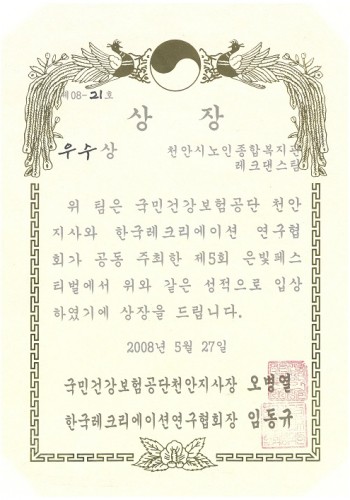 제 08-21호
상 장
우수상 천안시노인종합복지관
레크댄스팀
위 팀은 국민건강보험공단 천안
지사와 한국레크리에이션 연구협
회가 공동 주최한 제5회 은빛페스
티벌에서 위와 같은 성적으로 입상
하였기에 상장을 드립니다.
2008년 5월 27일
국민건강보험공단천안지사장 오병열
한국레크리에이션연구협회장 임동규